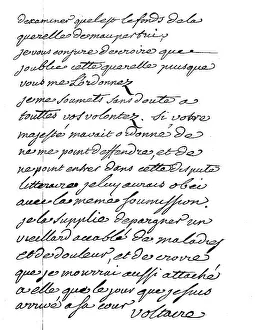 dexaminer quel est le fonds de la
querelle de maupertuis
je vous conjure de croire que
joublie cette querelle puisque
vous me Lordonnez
je me soumets sans doute a
touttes vos volontez. si votre
majesté mavait ordonné de
ne me point deffendre, et de
ne point entrer dans cette dispute
litteraire je luy aurais obéi
avec la meme soumission.
je la supplie depargner un
vieillard accablé de maladies
et de douleur, et de croire
que je mourrai aussi attaché
a elle que le jour que je suis
arrivé a sa cour
Voltaire